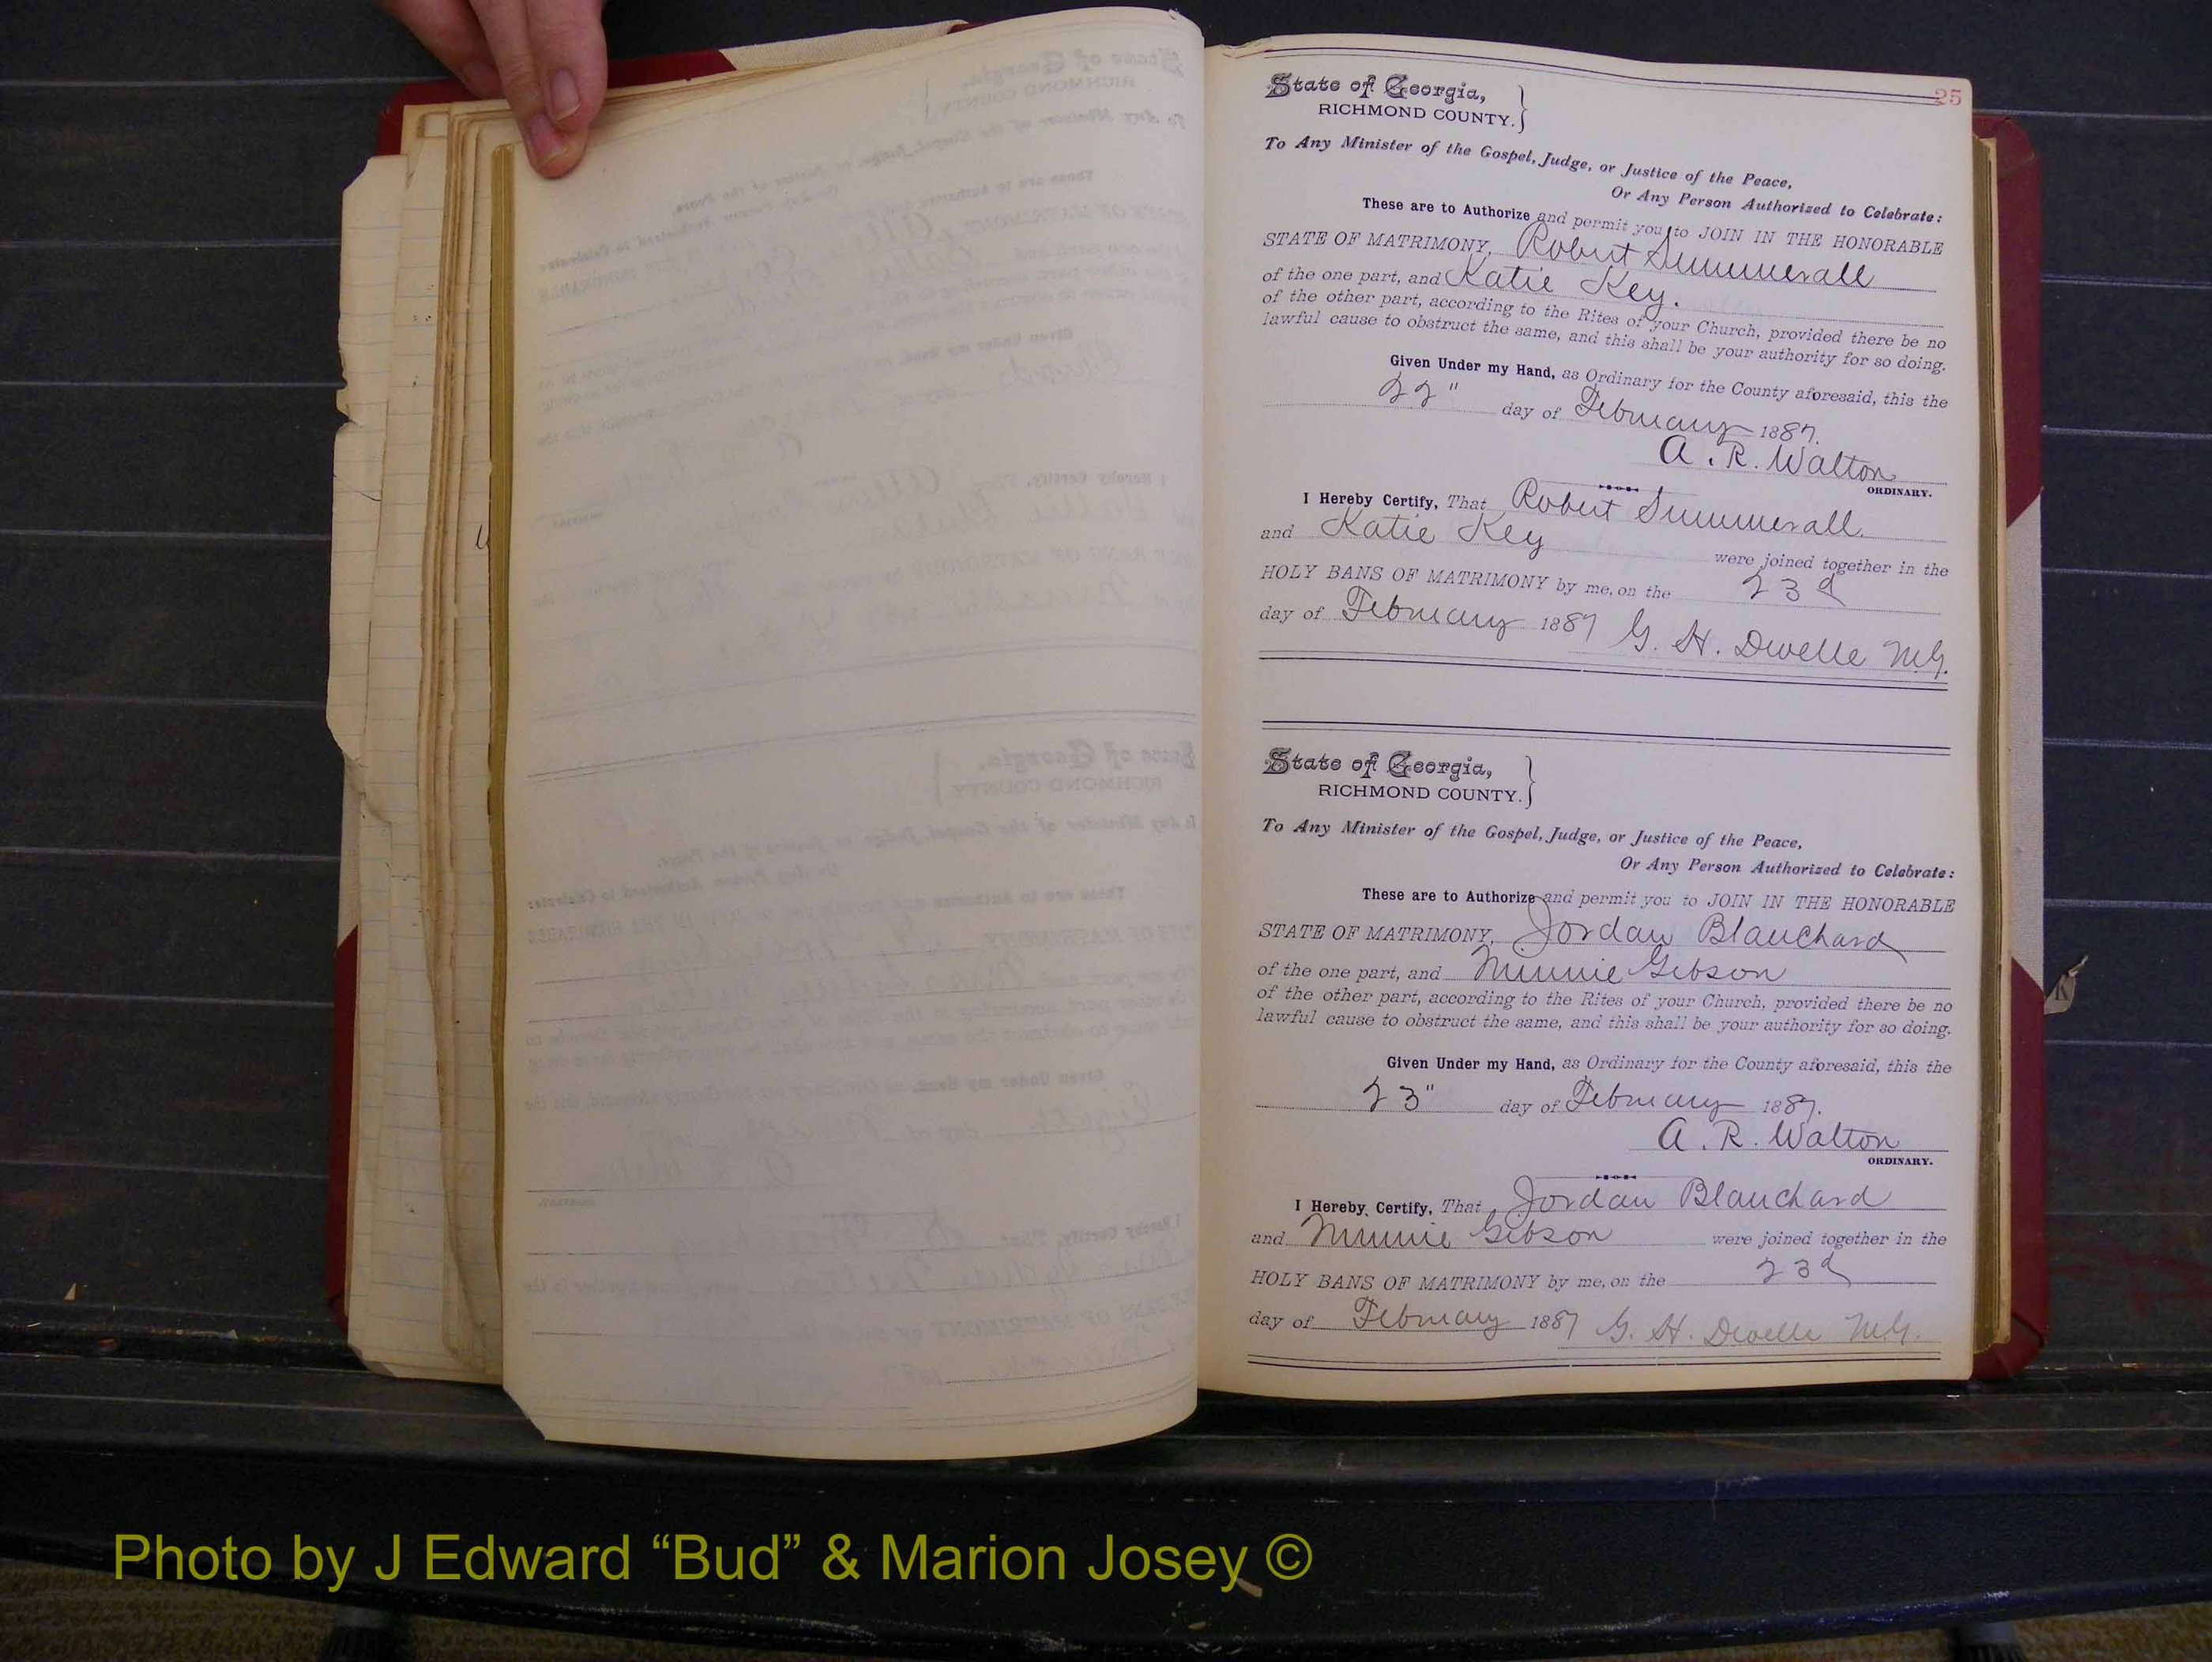 25
State of Georgia,
RICHMOND COUNTY.
To Any Minister of the Gospel, Judge, or Justice of the Peace,
Or Any Person Authorized to Celebrate:
These are to Authorize and permit you to JOIN IN THE HONORABLE
STATE OF MATRIMONY, Robert Summerall
of the one part, and Katie Key.
of the other part, according to the Rites of your Church, provided there be no
lawful cause to obstruct the same, and this shall be your authority for so doing.
Given Under my Hand, as Ordinary for the County aforesaid, this the
22" day of February 1887.
A. R. Walton
ORDINARY.
I Hereby Certify, That Robert Summerall.
and Katie Key were joined together in the
HOLY BANS OF MATRIMONY by me, on the 23d
day of February 1887 G. H. Dwelle M.G.
State of Georgia,
RICHMOND COUNTY.
To Any Minister of the Gospel, Judge, or Justice of the Peace,
Or Any Person Authorized to Celebrate:
These are to Authorize and permit you to JOIN IN THE HONORABLE
STATE OF MATRIMONY, Jordan Blanchard
of the one part, and Minnie Gibson
of the other part, according to the Rites of your Church, provided there be no
lawful cause to obstruct the same, and this shall be your authority for so doing.
Given Under my Hand, as Ordinary for the County aforesaid, this the
23" day of February 1887.
A. R. Walton
ORDINARY.
I Hereby Certify, That Jordan Blanchard
and Minnie Gibson were joined together in the
HOLY BANS OF MATRIMONY by me, on the 23d
day of February 1887 G. H. Dwelle M.G.
Photo by J Edward “Bud” & Marion Josey ©